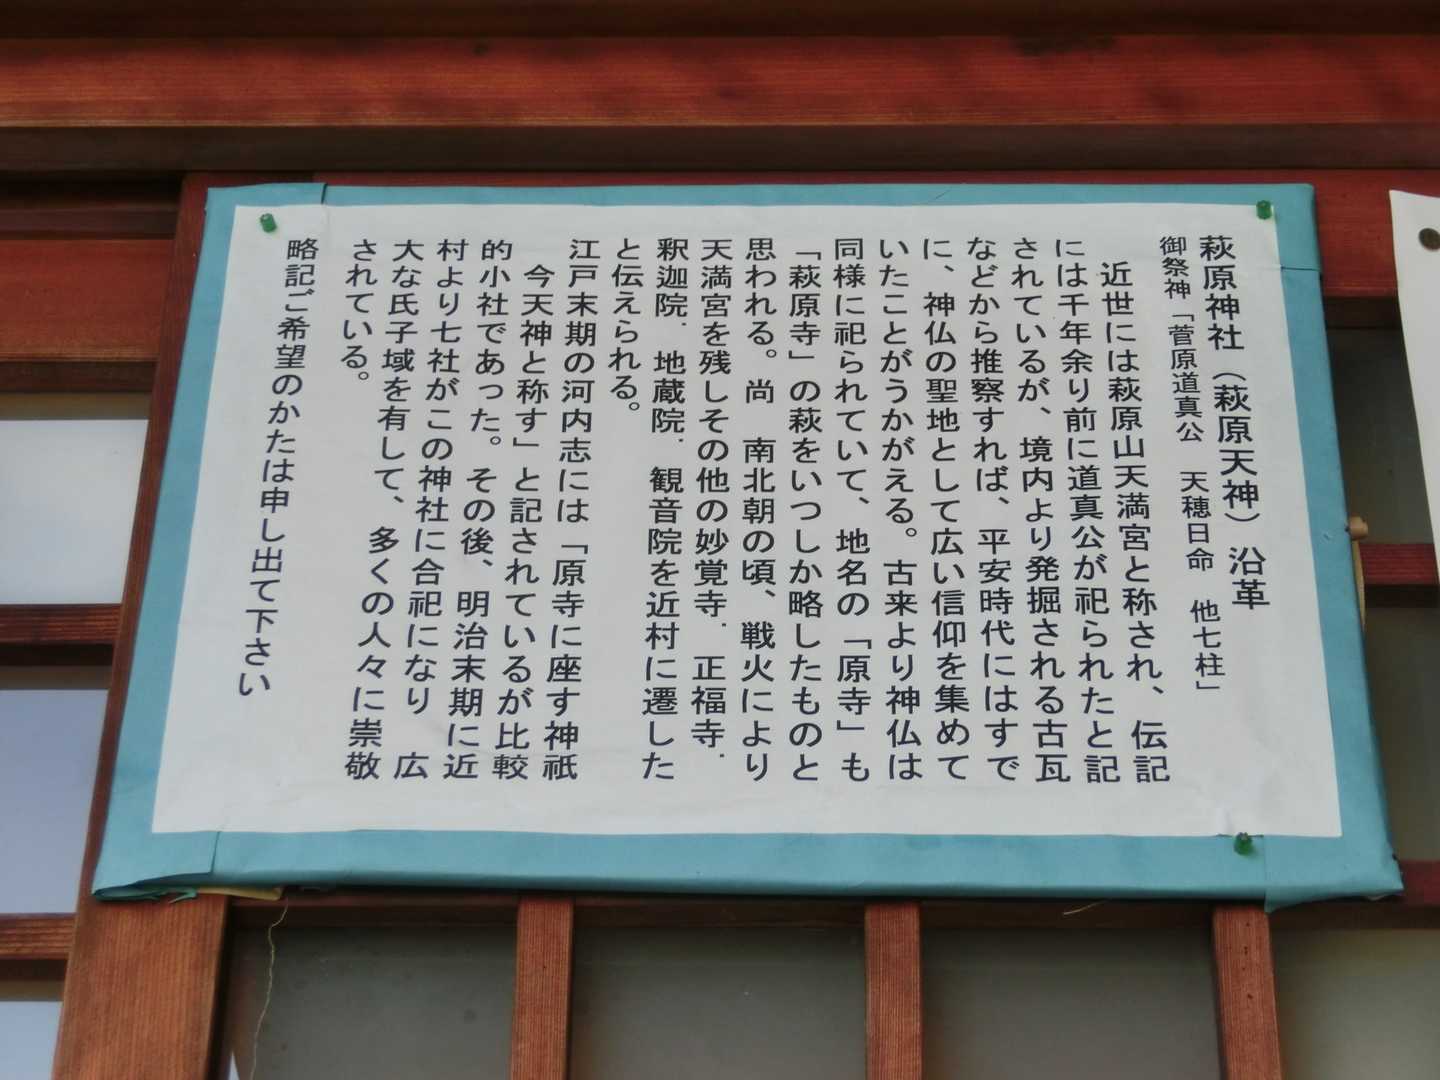 萩原神社（萩原天神）沿革
御祭神「菅原道真公　天穂日命　他七柱」
近世には萩原山天満宮と称され、伝記
には千年余り前に道真公が祀られたと記
されているが、境内より発掘される古瓦
などから推察すれば、平安時代にはすで
に、神仏の聖地として広い信仰を集めて
いたことがうかがえる。古来より神仏は
同様に祀られていて、地名の「原寺」も
「萩原寺」の萩をいつしか略したものと
思われる。尚　南北朝の頃、戦火により
天満宮を残しその他の妙覚寺．正福寺．
釈迦院．地蔵院．観音院を近村に遷した
と伝えられる。
江戸末期の河内志には「原寺に座す神祇
今天神と称す」と記されているが比較
的小社であった。その後、明治末期に近
村より七社がこの神社に合祀になり　広
大な氏子域を有して、多くの人々に崇敬
されている。
略記ご希望のかたは申し出て下さい